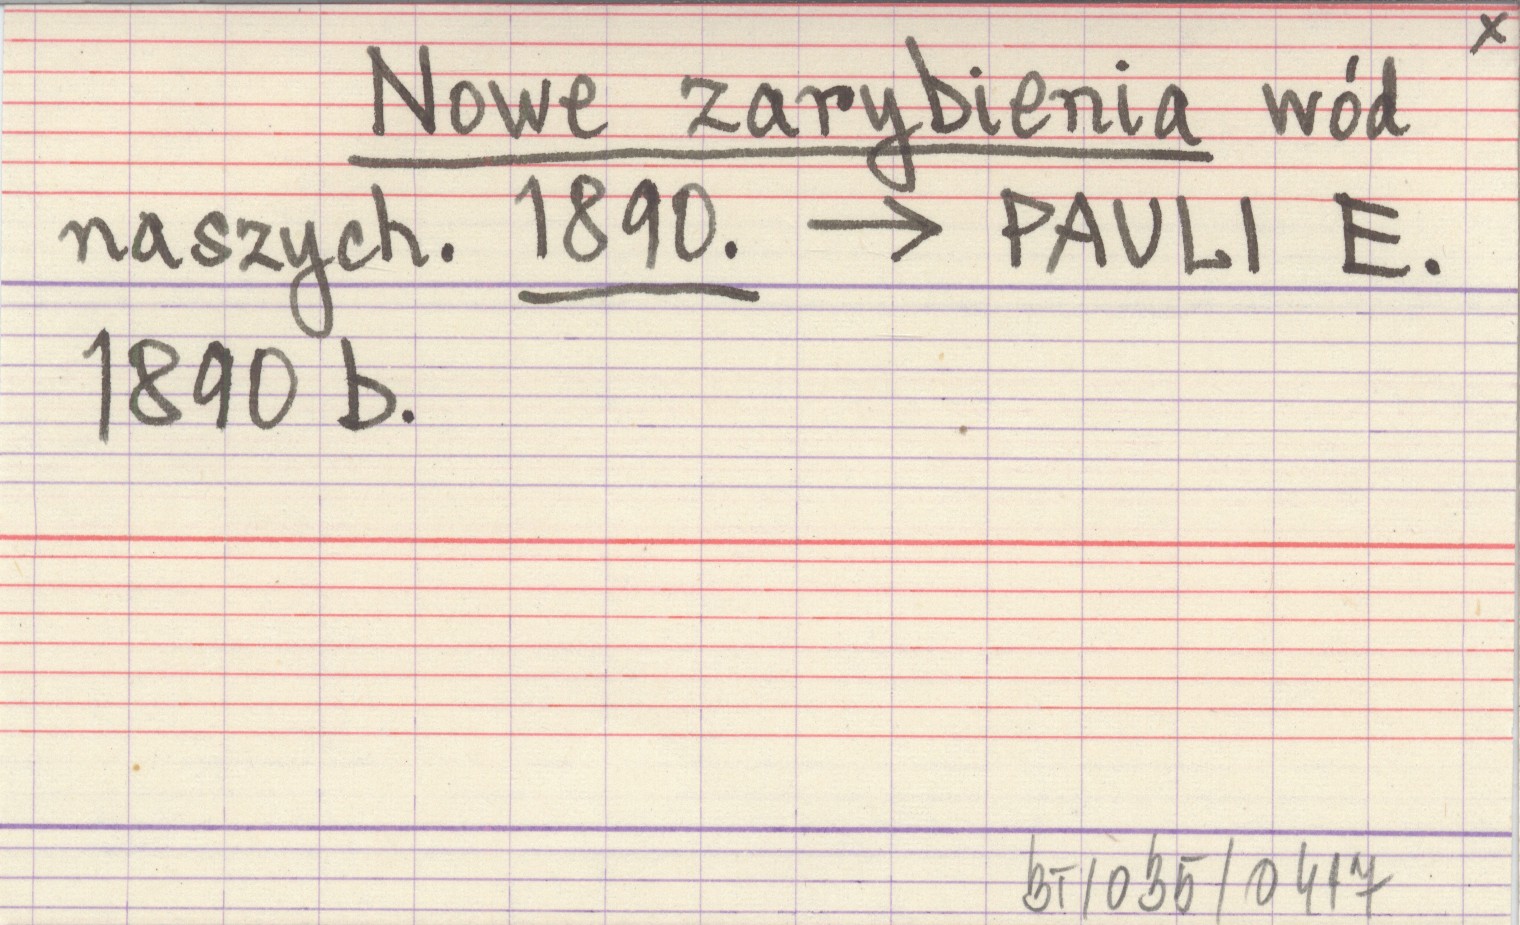 x
Nowe zarybienia wód
naszych. 1890. → PAULI E.
1890 b.
BT/035/0417